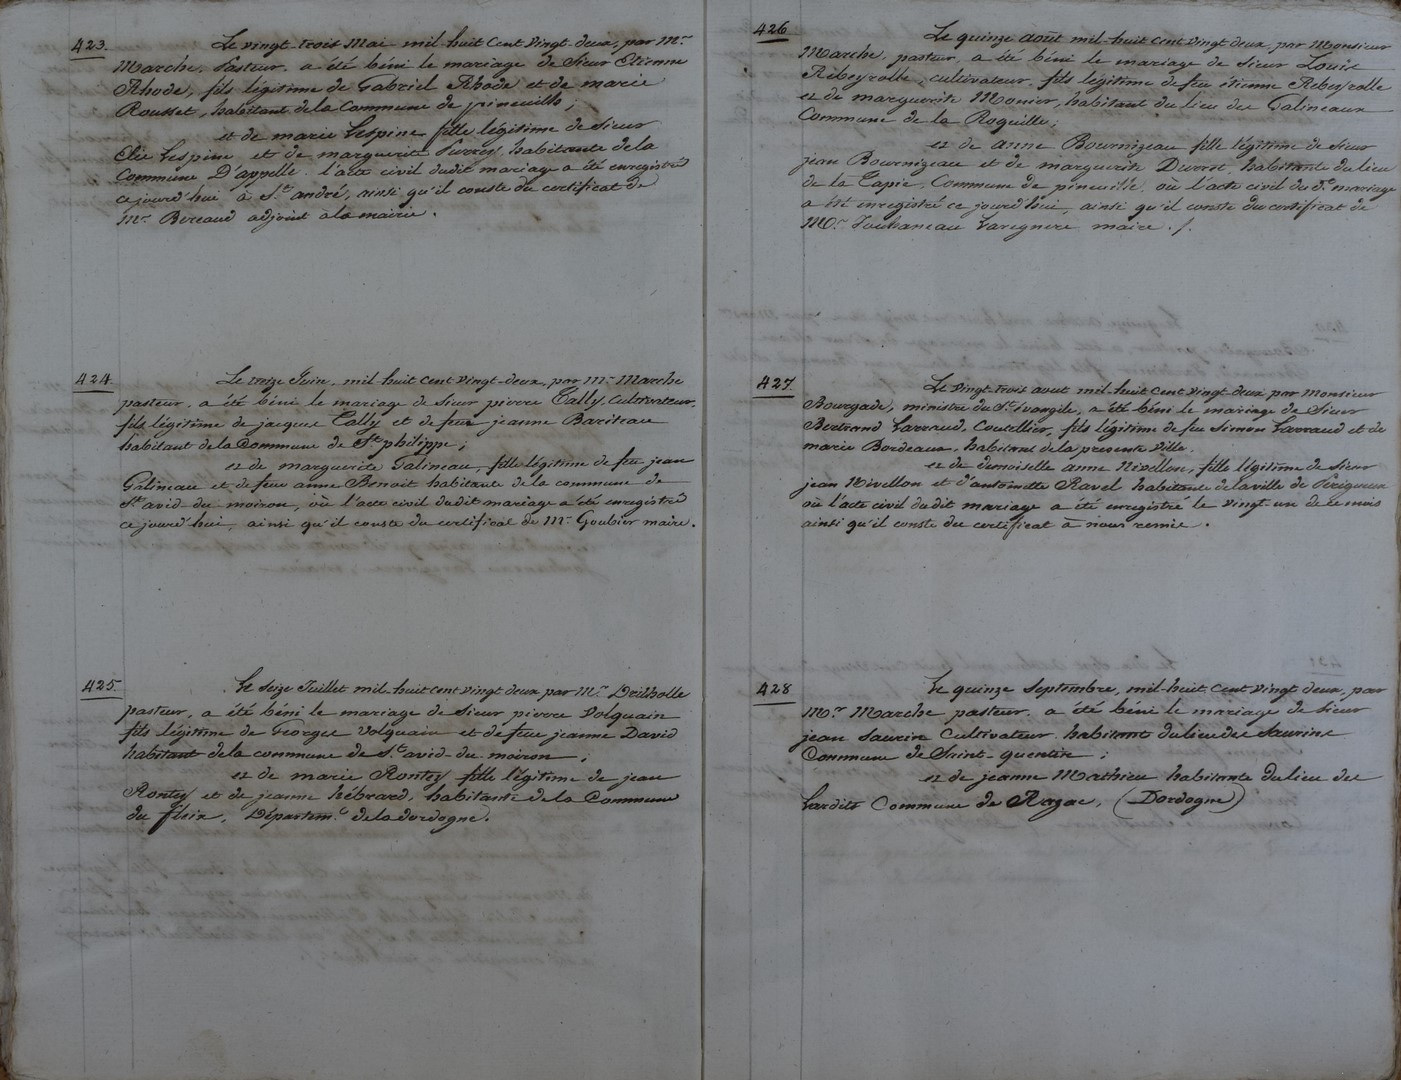 423.
Le vingt-trois Mai mil-huit Cent vingt-deux, par Mr
Marche, Pasteur, a été béni le mariage de Sieur Etienne
Rhode, fils légitime de Gabriel Rhode et de marie
Rousset, habitant de la Commune de pineuilh;
et de marie Lespine fille légitime de Sieur
Elie Lespine, et de marguerite habitante de la
Commune D'appelle. l'acte civil dudit mariage a été enregistré
cejourd'hui à St andré, ainsi qu'il conste du certificat de
Mr Bereaud adjoint à la mairie.
424.
Le treize Juin, mil huit cent vingt-deux, par Mr Marche
pasteur, a été béni le mariage de Sieur pierre Tally, Cultivateur,
fils légitime de jacques Tally et de feue jeanne Bariteau
habitant de la Commune de St philippe;
et de marguerite Galineau, fille légitime de feu jean
Galineau et de feue anne Benoit habitante de la commune de
St avid du moiron, où l'acte civil dudit mariage a été enregistré
cejourd'hui, ainsi qu'il conste du certificat de Mr Goubier maire.
425.
Le Seize Juillet mil-huit cent vingt deux par Mr Drilholle
pasteur, a été béni le mariage de Sieur pierre Volquain
fils légitime de Georges Volquain et de feue jeanne David
habitant de la commune de St avid-du-moiron;
et de marie Rontey fille légitime de jean
Rontey et de jeanne hébrard, habitante de la Commune
du fleix, Départemt de la dordogne.
426
Le quinze août mil-huit cent vingt deux, par Monsieur
Marche, pasteur, a été béni le mariage de Sieur Louis
Ribeyrolle, cultivateur, fils légitime de feu étienne Ribeyrolle
et de marguerite Monier, habitant du lieu des Galineaux
Commune de la Roquille;
et de anne Bournizeau fille légitime de Sieur
jean Bournizeau et de marguerite habitante du lieu
de la Tapie, Commune de pineuilh, où l'acte civil du dt mariage
a été enregistré ce jourd'hui, ainsi qu'il conste du certificat de
Mr Jouhaneau Laregnere maire ./.
427.
Le vingt-trois août mil-huit cent vingt deux par Monsieur
Bourgade, ministre du St évangile, a été béni le mariage de Sieur
Bertrand Larraud, Coutellier, fils légitime de feu Simon Larraud et de
marie Bordeaux, habitant de la presente ville.
et de demoiselle anne Nivellon, fille légitime de Sieur
jean Nivellon et d'antoinette Ravel habitante de la ville de Périgueux
où l'acte civil dudit mariage a été enregistré le vingt-un de ce mois
ainsi qu'il conste du certificat à nous remis.
428
Le quinze Septembre, mil-huit Cent vingt deux, par
Mr Marche pasteur, a été béni le mariage de Sieur
jean Saurin Cultivateur habitant du lieu des Saurins
Commune de Saint-quentin;
et de jeanne Mathieu habitante du lieu des
Lardits Commune de Razac, (Dordogne)